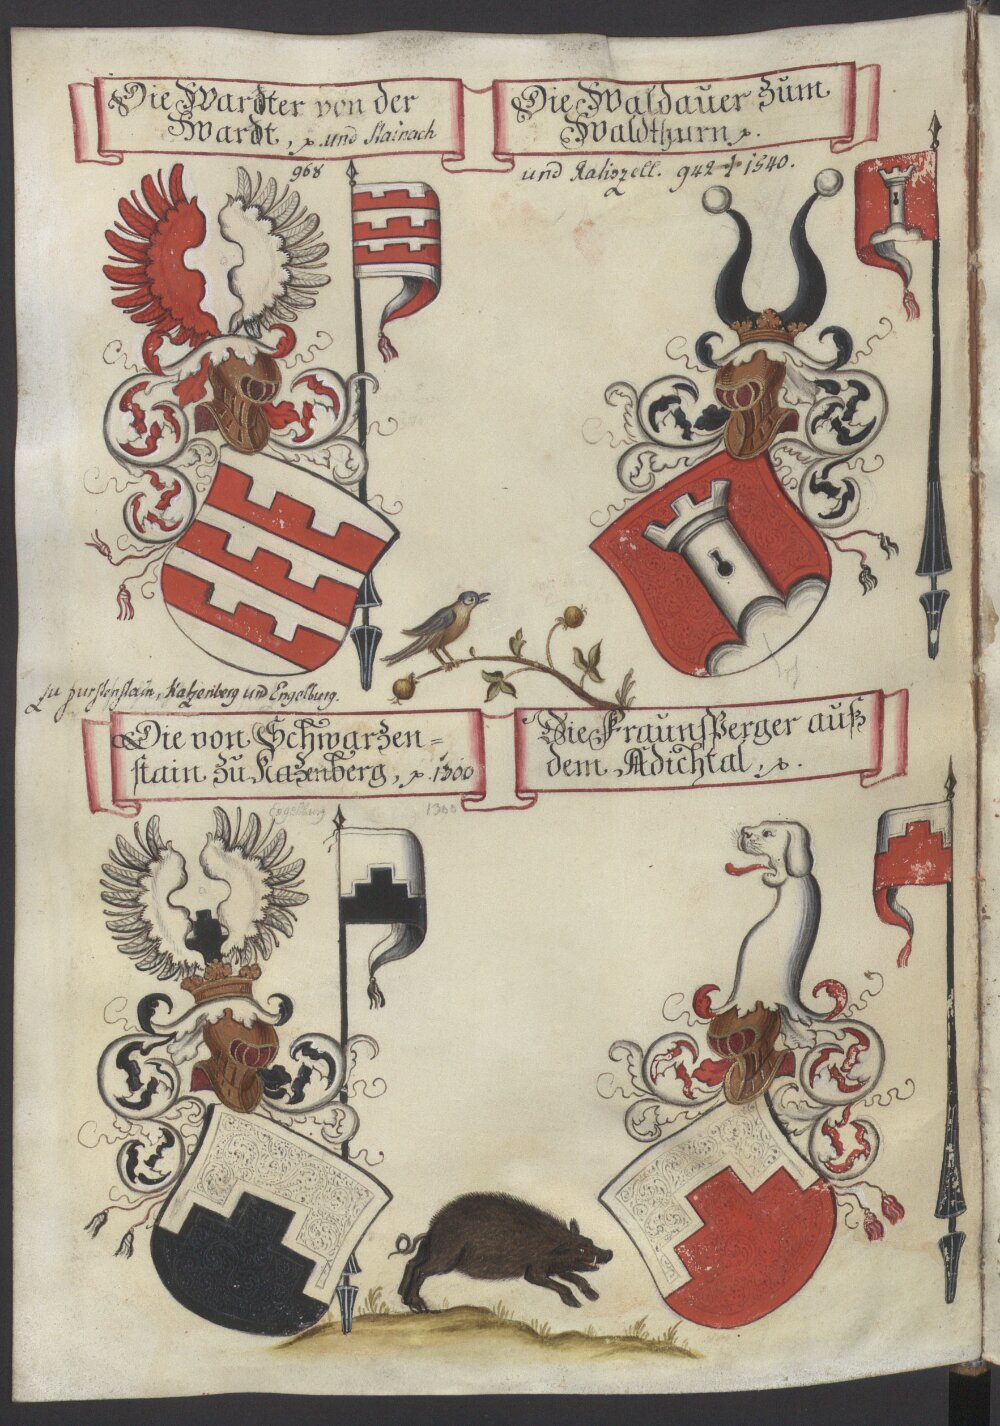 Die Wardter von der
Wardt, p. und Stainach
968
Die Waldauer zum
Waldthurn p.
und Kalizzell. 942 † 1540.
zu furstenstain, Katzenberg und Engelburg.
Die von Schwarzen=
stain zu Kazenberg, p. 1300
Engelburg 1300
Die Fraunsperger auß
dem Adichtal, p.